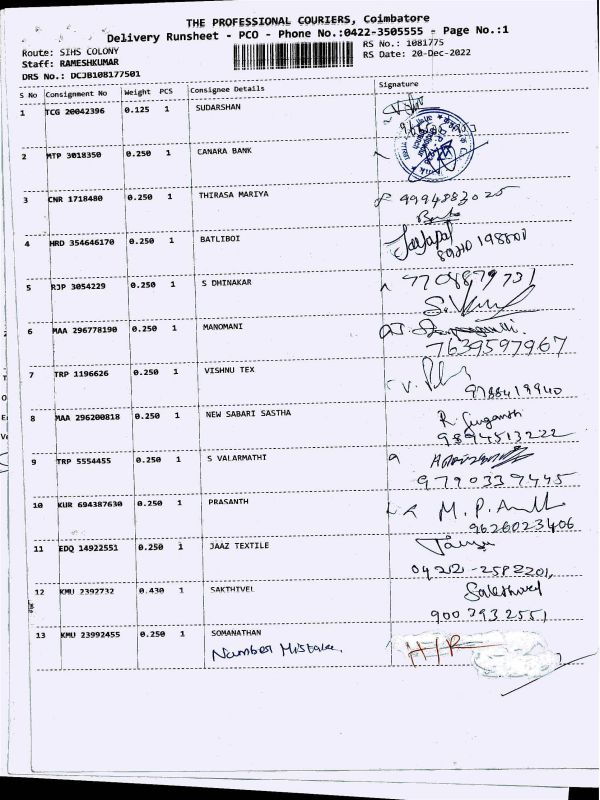 THE PROFESSIONAL COURIERS, Coimbatore
Delivery Runsheet - PCO - Phone No.:0422-3505555 - Page No.:1
Route: SIHS COLONY
RS No.: 1081775
Staff: RAMESHKUMAR
RS Date: 20-Dec-2022
DRS No.: DCJB108177501
S No Consignment No Weight PCS Consignee Details Signature
1 TCG 20042396 0.125 1 SUDARSHAN
2 MTP 3018350 0.250 1 CANARA BANK
3 CNR 1718480 0.250 1 THIRASA MARIYA 9994883025
4 HRD 354646170 0.250 1 BATLIBOI Jayapal
5 RJP 3054229 0.250 1 S DHINAKAR 9708879731
6 MAA 296778190 0.250 1 MANOMANI
7639597967
7 TRP 1196626 0.250 1 VISHNU TEX
9788419940
8 MAA 296200818 0.250 1 NEW SABARI SASTHA
9894513222
9 TRP 5554455 0.250 1 S VALARMATHI
9790339445
10 KUR 694387630 0.250 1 PRASANTH M.P.
9626023406
11 EDQ 14922551 0.250 1 JAAZ TEXTILE
0422-2582201,
12 KMU 2392732 0.430 1 SAKTHIVEL Sakthivel
9007932551
13 KMU 23992455 0.250 1 SOMANATHAN
Number Mistake.